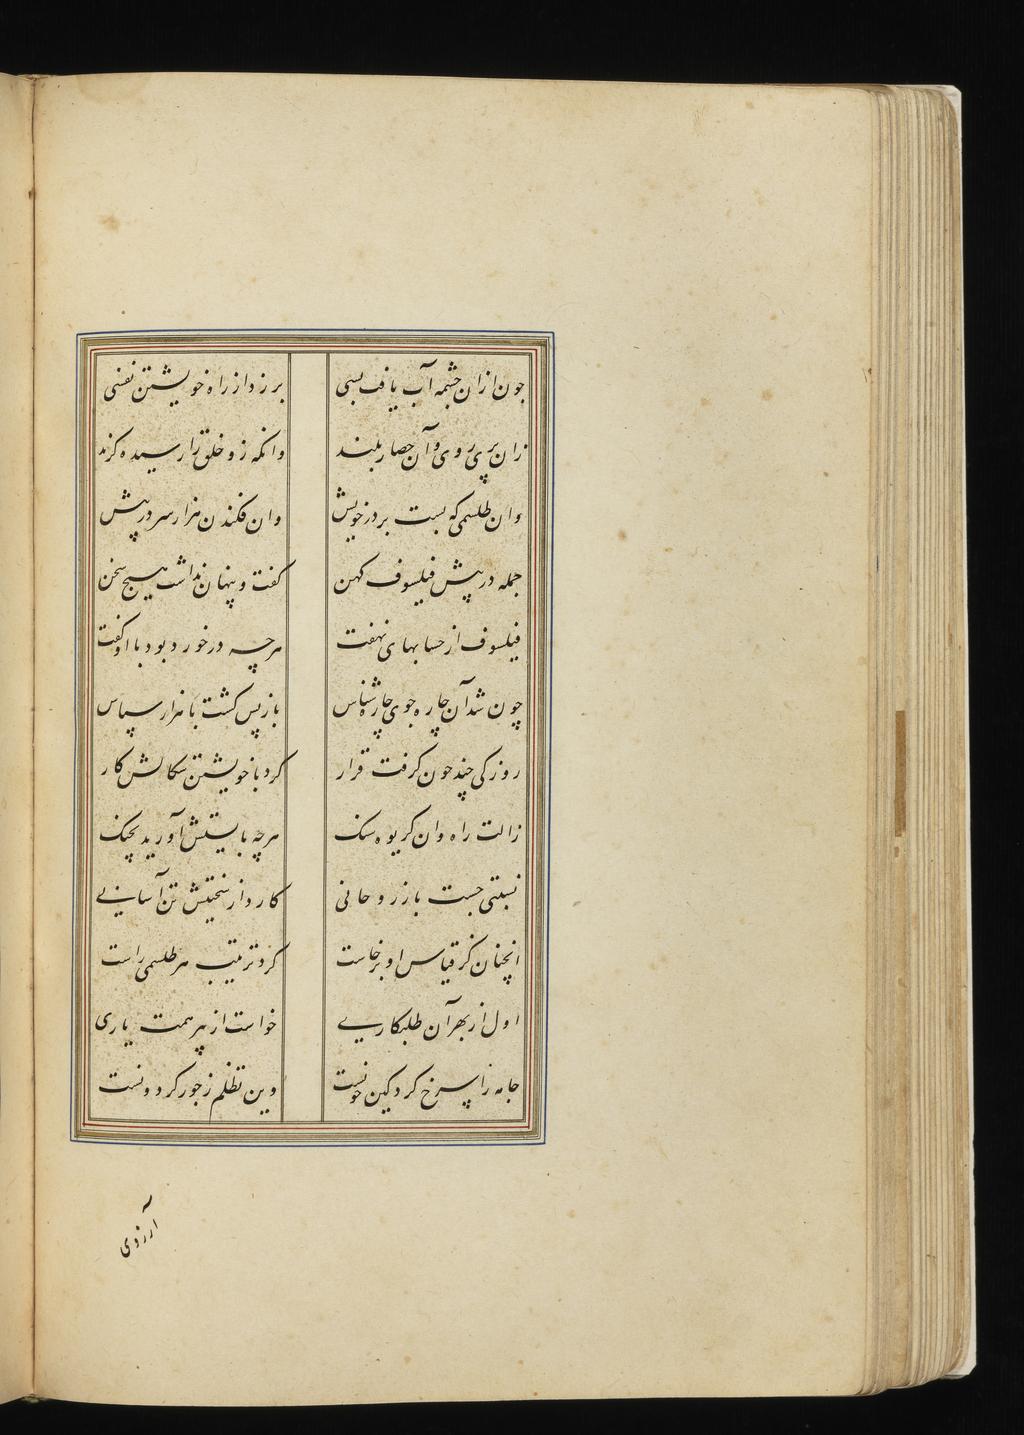 چون ازان چشمه آب یافت بسی برزد از راه خویشتن نفسی
زان پری روی و آن حصار بلند وانکه زو خلق را رسیده گزند
وان طلسمی که بست بر در خویش وان فکندن هزار سر در پیش
جمله در پیش فیلسوف کهن گفت و پنهان نداشت هیچ سخن
فیلسوف از حسابهای نهفت هرچه درخورد بود با او گفت
چون شد آن چاره جوی چاره شناس باز پس گشت با هزار سپاس
روزکی چند چون گرفت قرار کرد با خویشتن سکالش کار
زالت راه وان کریوه سنک هرچه بایستش آورید بچنک
نسبتی جست باز روحانی کارد از سختیش تن آسانی
انچنان کز قیاس او برخاست کرد ترتیب هر طلسمی راست
اول از بهر آن طلبکاری خواست از پیر همت یاری
جامه را سرخ کرد کین خونست وین تظلم ز جور گردونست
آرزوی